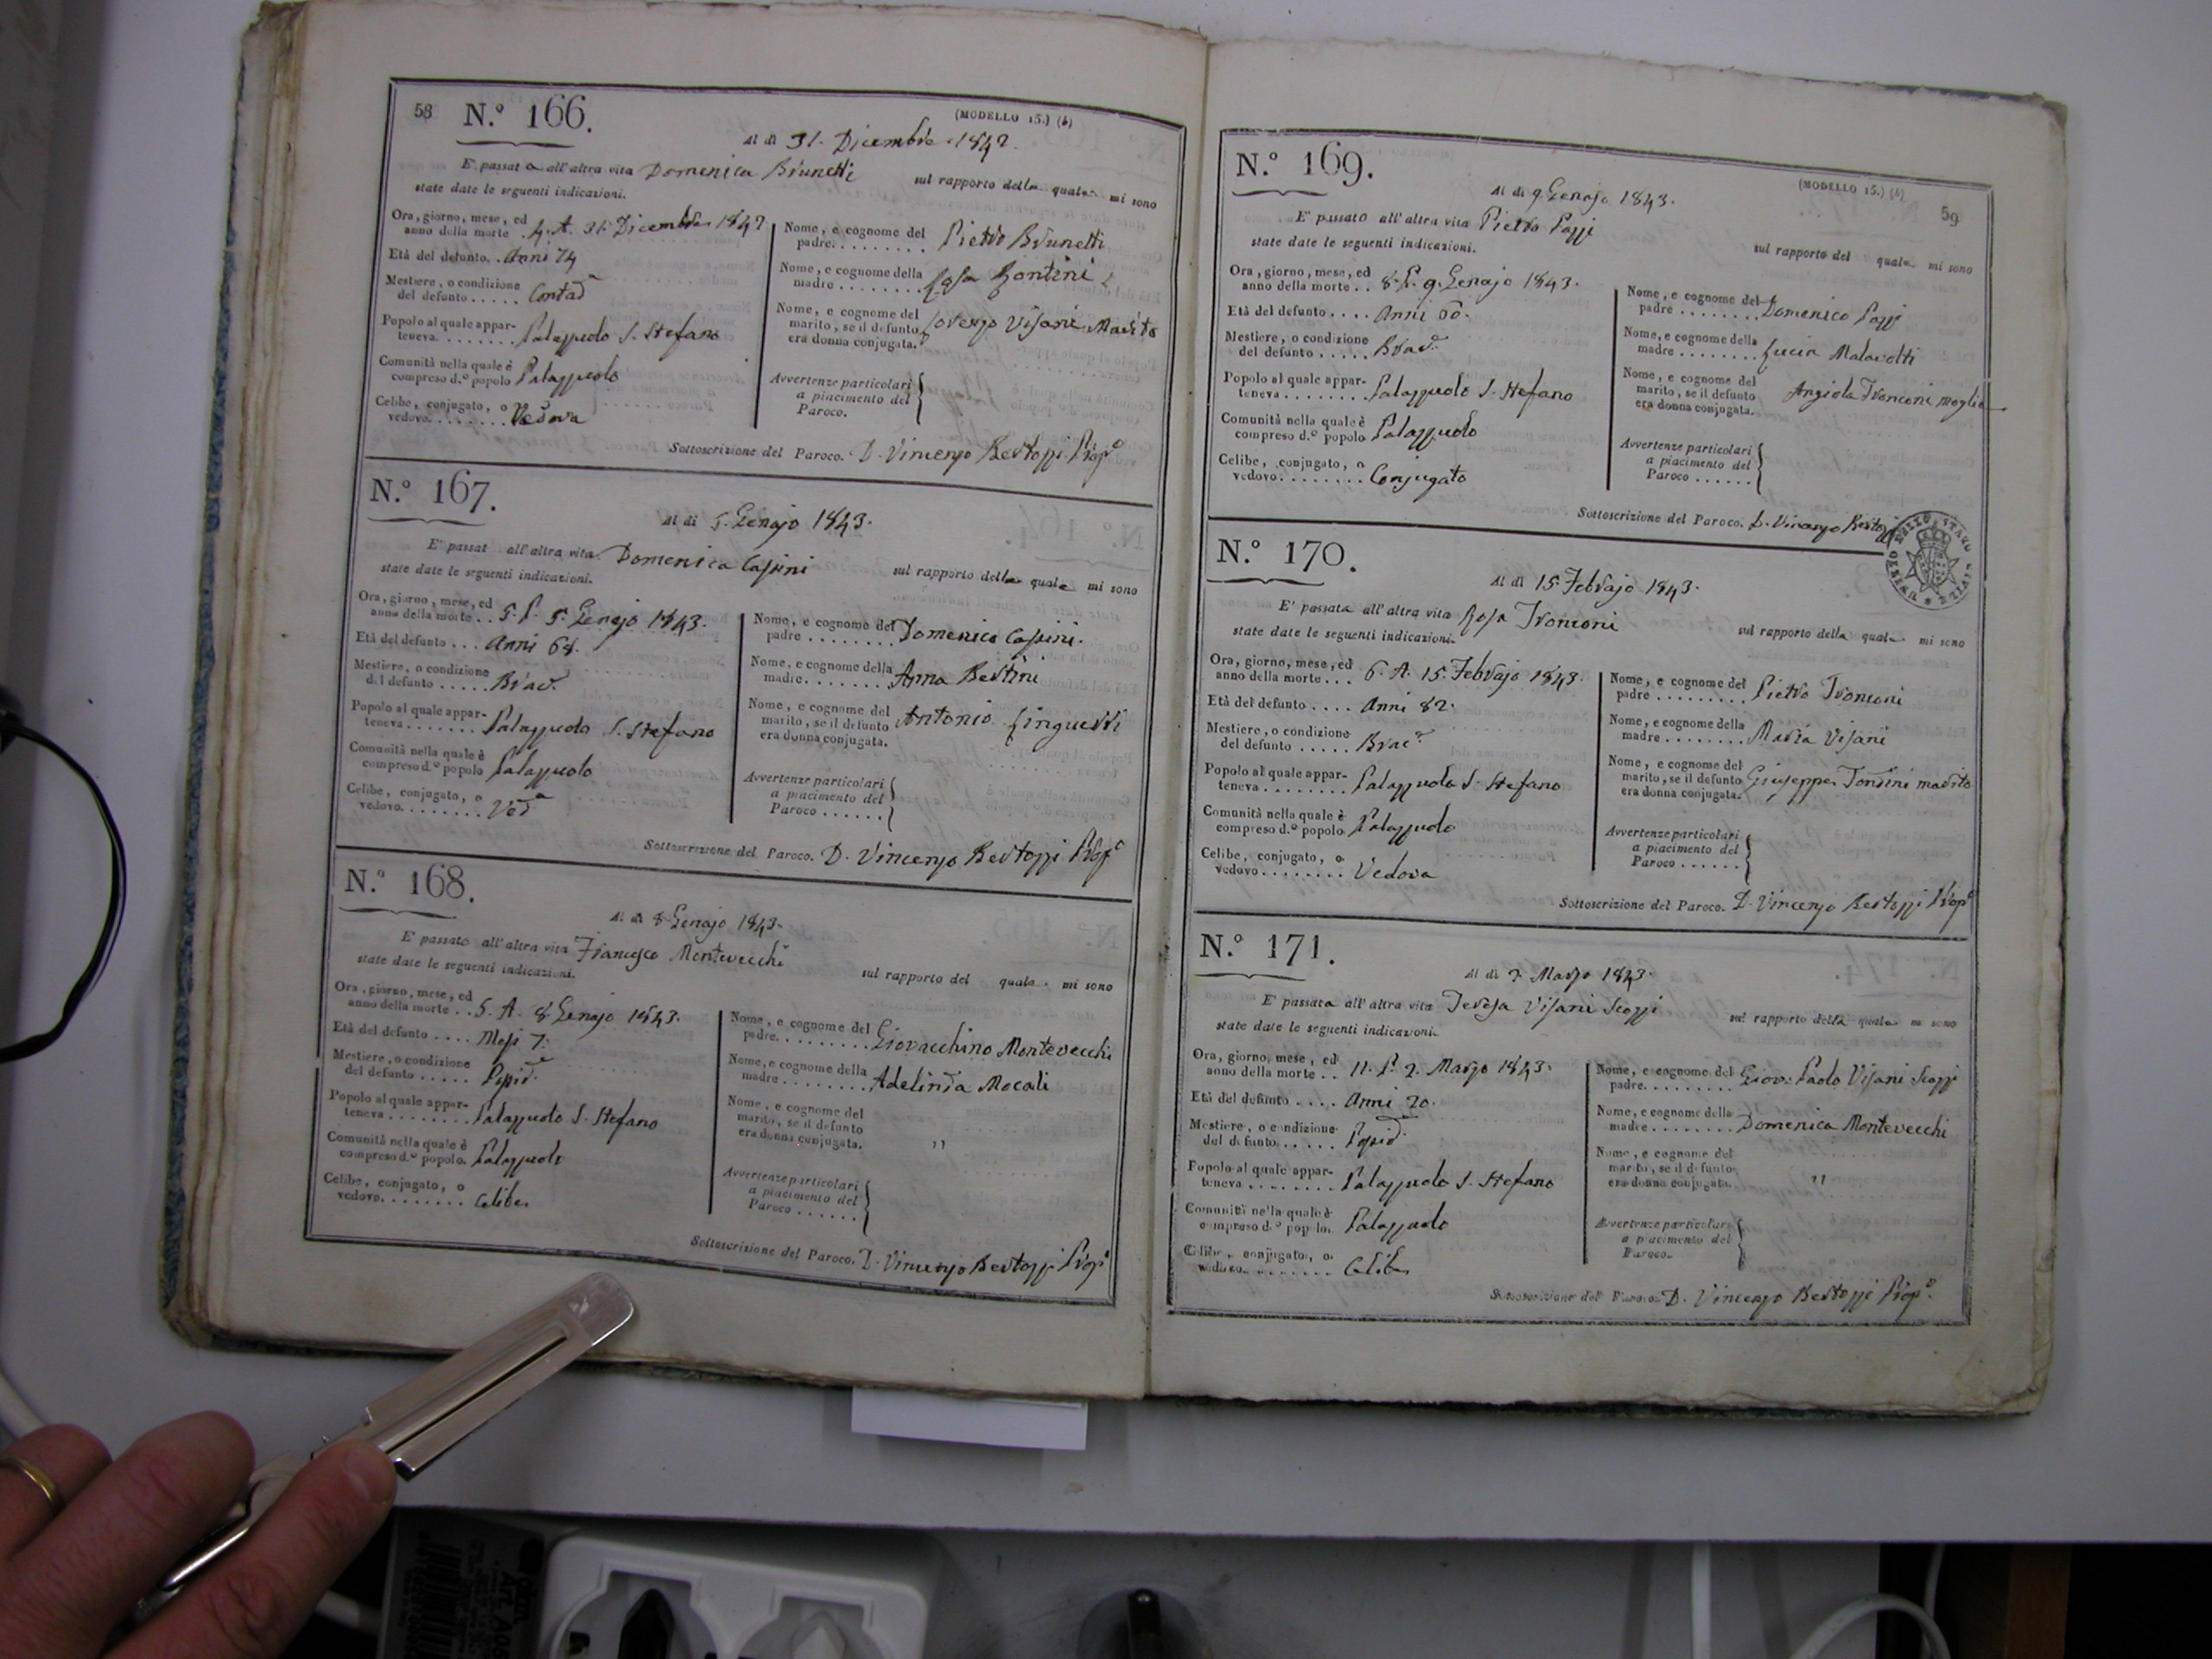 58 N.º 166. (MODELLO 15.) (b)
Al di 31. Dicembre 1842.
E' passata all'altra vita Domenica Brunetti sul rapporto della quale mi sono
state date le seguenti indicazioni.
Ora, giorno, mese, ed
anno della morte . 4. A. 31. Dicembre 1842
Età del defunto. . Anni 74
Mestiere, o condizione
del defunto . . . . . Contad
Popolo al quale appar-
teneva. . . . . . . . Palazzuolo S. Stefano
Comunità nella quale è
compreso d.º popolo Palazzuolo
Celibe, conjugato, o
vedovo. . . . . . . . Vedova
Nome, e cognome del
padre. . . . . . . . . Pietro Brunetti
Nome, e cognome della
madre . . . . . . . . Rosa Gontini
Nome, e cognome del
marito, se il defunto
era donna conjugata. Lorenzo Visani Marito
Avvertenze particolari
a piacimento del
Paroco.
Sottoscrizione del Paroco. D. Vincenzo Bertozzi Prop.º
N.º 167.
Al di 5. Genajo 1843.
E' passat all'altra vita Domenica Casini sul rapporto della quale mi sono
state date le seguenti indicazioni.
Ora, giorno, mese, ed
anno della morte . . 5. P. 5. Genajo 1843.
Età del defunto . . . Anni 68.
Mestiere, o condizione
del defunto . . . . . Brac.
Popolo al quale appar-
teneva . . . . . . . Palazzuolo S. Stefano
Comunità nella quale è
compreso d.º popolo Palazzuolo
Celibe, conjugato, o
vedovo. . . . . . . . Ved.a
Nome, e cognome del
padre . . . . . . . . Domenico Casini.
Nome, e cognome della
madre. . . . . . . . Anna Bertini
Nome, e cognome del
marito, se il defunto
era donna conjugata. Antonio Linguerri
Avvertenze particolari
a piacimento del
Paroco . . . . . .
Sottoscrizione del Paroco. D. Vincenzo Bertozzi Prop.º
N.º 168.
Al di 8. Genajo 1843.
E' passato all'altra vita Francesco Montevecchi sul rapporto del quale mi sono
state date le seguenti indicazioni.
Ora, giorno, mese, ed
anno della morte . . 5. A. 8. Genajo 1843.
Età del defunto . . . . Mesi 7.
Mestiere, o condizione
del defunto . . . . .
Popolo al quale appar-
teneva . . . . . . . . Palazzuolo S. Stefano
Comunità nella quale è
compreso d.º popolo. Palazzuolo
Celibe, conjugato, o
vedovo. . . . . . . . Celibe
Nome, e cognome del
padre. . . . . . . . . Giovacchino Montevecchi
Nome, e cognome della
madre . . . . . . . . Adelinda Mocali
Nome, e cognome del
marito, se il defunto
era donna conjugata. "
Avvertenze particolari
a piacimento del
Paroco . . . . . .
Sottoscrizione del Paroco. D. Vincenzo Bertozzi Prop.º
N.º 169. (MODELLO 15.) (b) 59
Al di 9. Genajo 1843.
E' passato all'altra vita Pietro Pozzi sul rapporto del quale mi sono
state date le seguenti indicazioni.
Ora, giorno, mese, ed
anno della morte . . 8. P. 9. Genajo 1843.
Età del defunto . . . . Anni 60.
Mestiere, o condizione
del defunto . . . . . Brac.
Popolo al quale appar-
teneva . . . . . . . . Palazzuolo S. Stefano
Comunità nella quale è
compreso d.º popolo Palazzuolo
Celibe, conjugato, o
vedovo. . . . . . . . Conjugato
Nome, e cognome del
padre . . . . . . . . Domenico Pozzi
Nome, e cognome della
madre . . . . . . . . Lucia Malavolti
Nome, e cognome del
marito, se il defunto
era donna conjugata. Angiola Tronconi moglie
Avvertenze particolari
a piacimento del
Paroco . . . . . .
Sottoscrizione del Paroco. D. Vincenzo Bertozzi
N.º 170.
Al di 15. Febrajo 1843.
E' passata all'altra vita Rosa Tronconi sul rapporto della quale mi sono
state date le seguenti indicazioni.
Ora, giorno, mese, ed
anno della morte . . . 6. A. 15. Febrajo 1843.
Età del defunto . . . . Anni 82.
Mestiere, o condizione
del defunto . . . . . . Brac.
Popolo al quale appar-
teneva . . . . . . . . Palazzuolo S. Stefano
Comunità nella quale è
compreso d.º popolo Palazzuolo
Celibe, conjugato, o
vedovo. . . . . . . . Vedova
Nome, e cognome del
padre . . . . . . . . . Pietro Tronconi
Nome, e cognome della
madre . . . . . . . . Maria Visani
Nome, e cognome del
marito, se il defunto
era donna conjugata. Giuseppe Tondini marito
Avvertenze particolari
a piacimento del
Paroco . . . . . .
Sottoscrizione del Paroco. D. Vincenzo Bertozzi Prop.º
N.º 171.
Al di 2. Marzo 1843.
E' passata all'altra vita Teresa Visani Scozzi sul rapporto della quale mi sono
state date le seguenti indicazioni.
Ora, giorno, mese, ed
anno della morte . . 11. P. 2. Marzo 1843.
Età del defunto . . . . Anni 20.
Mestiere, o condizione
del defunto. . . . . . Possid.
Popolo al quale appar-
teneva . . . . . . . . Palazzuolo S. Stefano
Comunità nella quale è
compreso d.º popolo. Palazzuolo
Celibe, conjugato, o
vedovo. . . . . . . . Celibe
Nome, e cognome del
padre. . . . . . . . . Giov. Paolo Visani Scozzi
Nome, e cognome della
madre . . . . . . . . Domenica Montevecchi
Nome, e cognome del
marito, se il defunto
era donna conjugata. "
Avvertenze particolari
a piacimento del
Paroco.
Sottoscrizione del Paroco. D. Vincenzo Bertozzi Prop.º